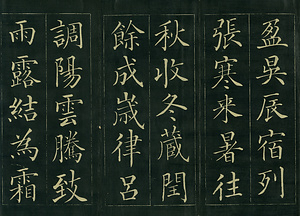 盈昃辰宿列
張寒来暑往
秋收冬蔵閏
餘成嵗律呂
調陽雲騰致
雨露結為霜